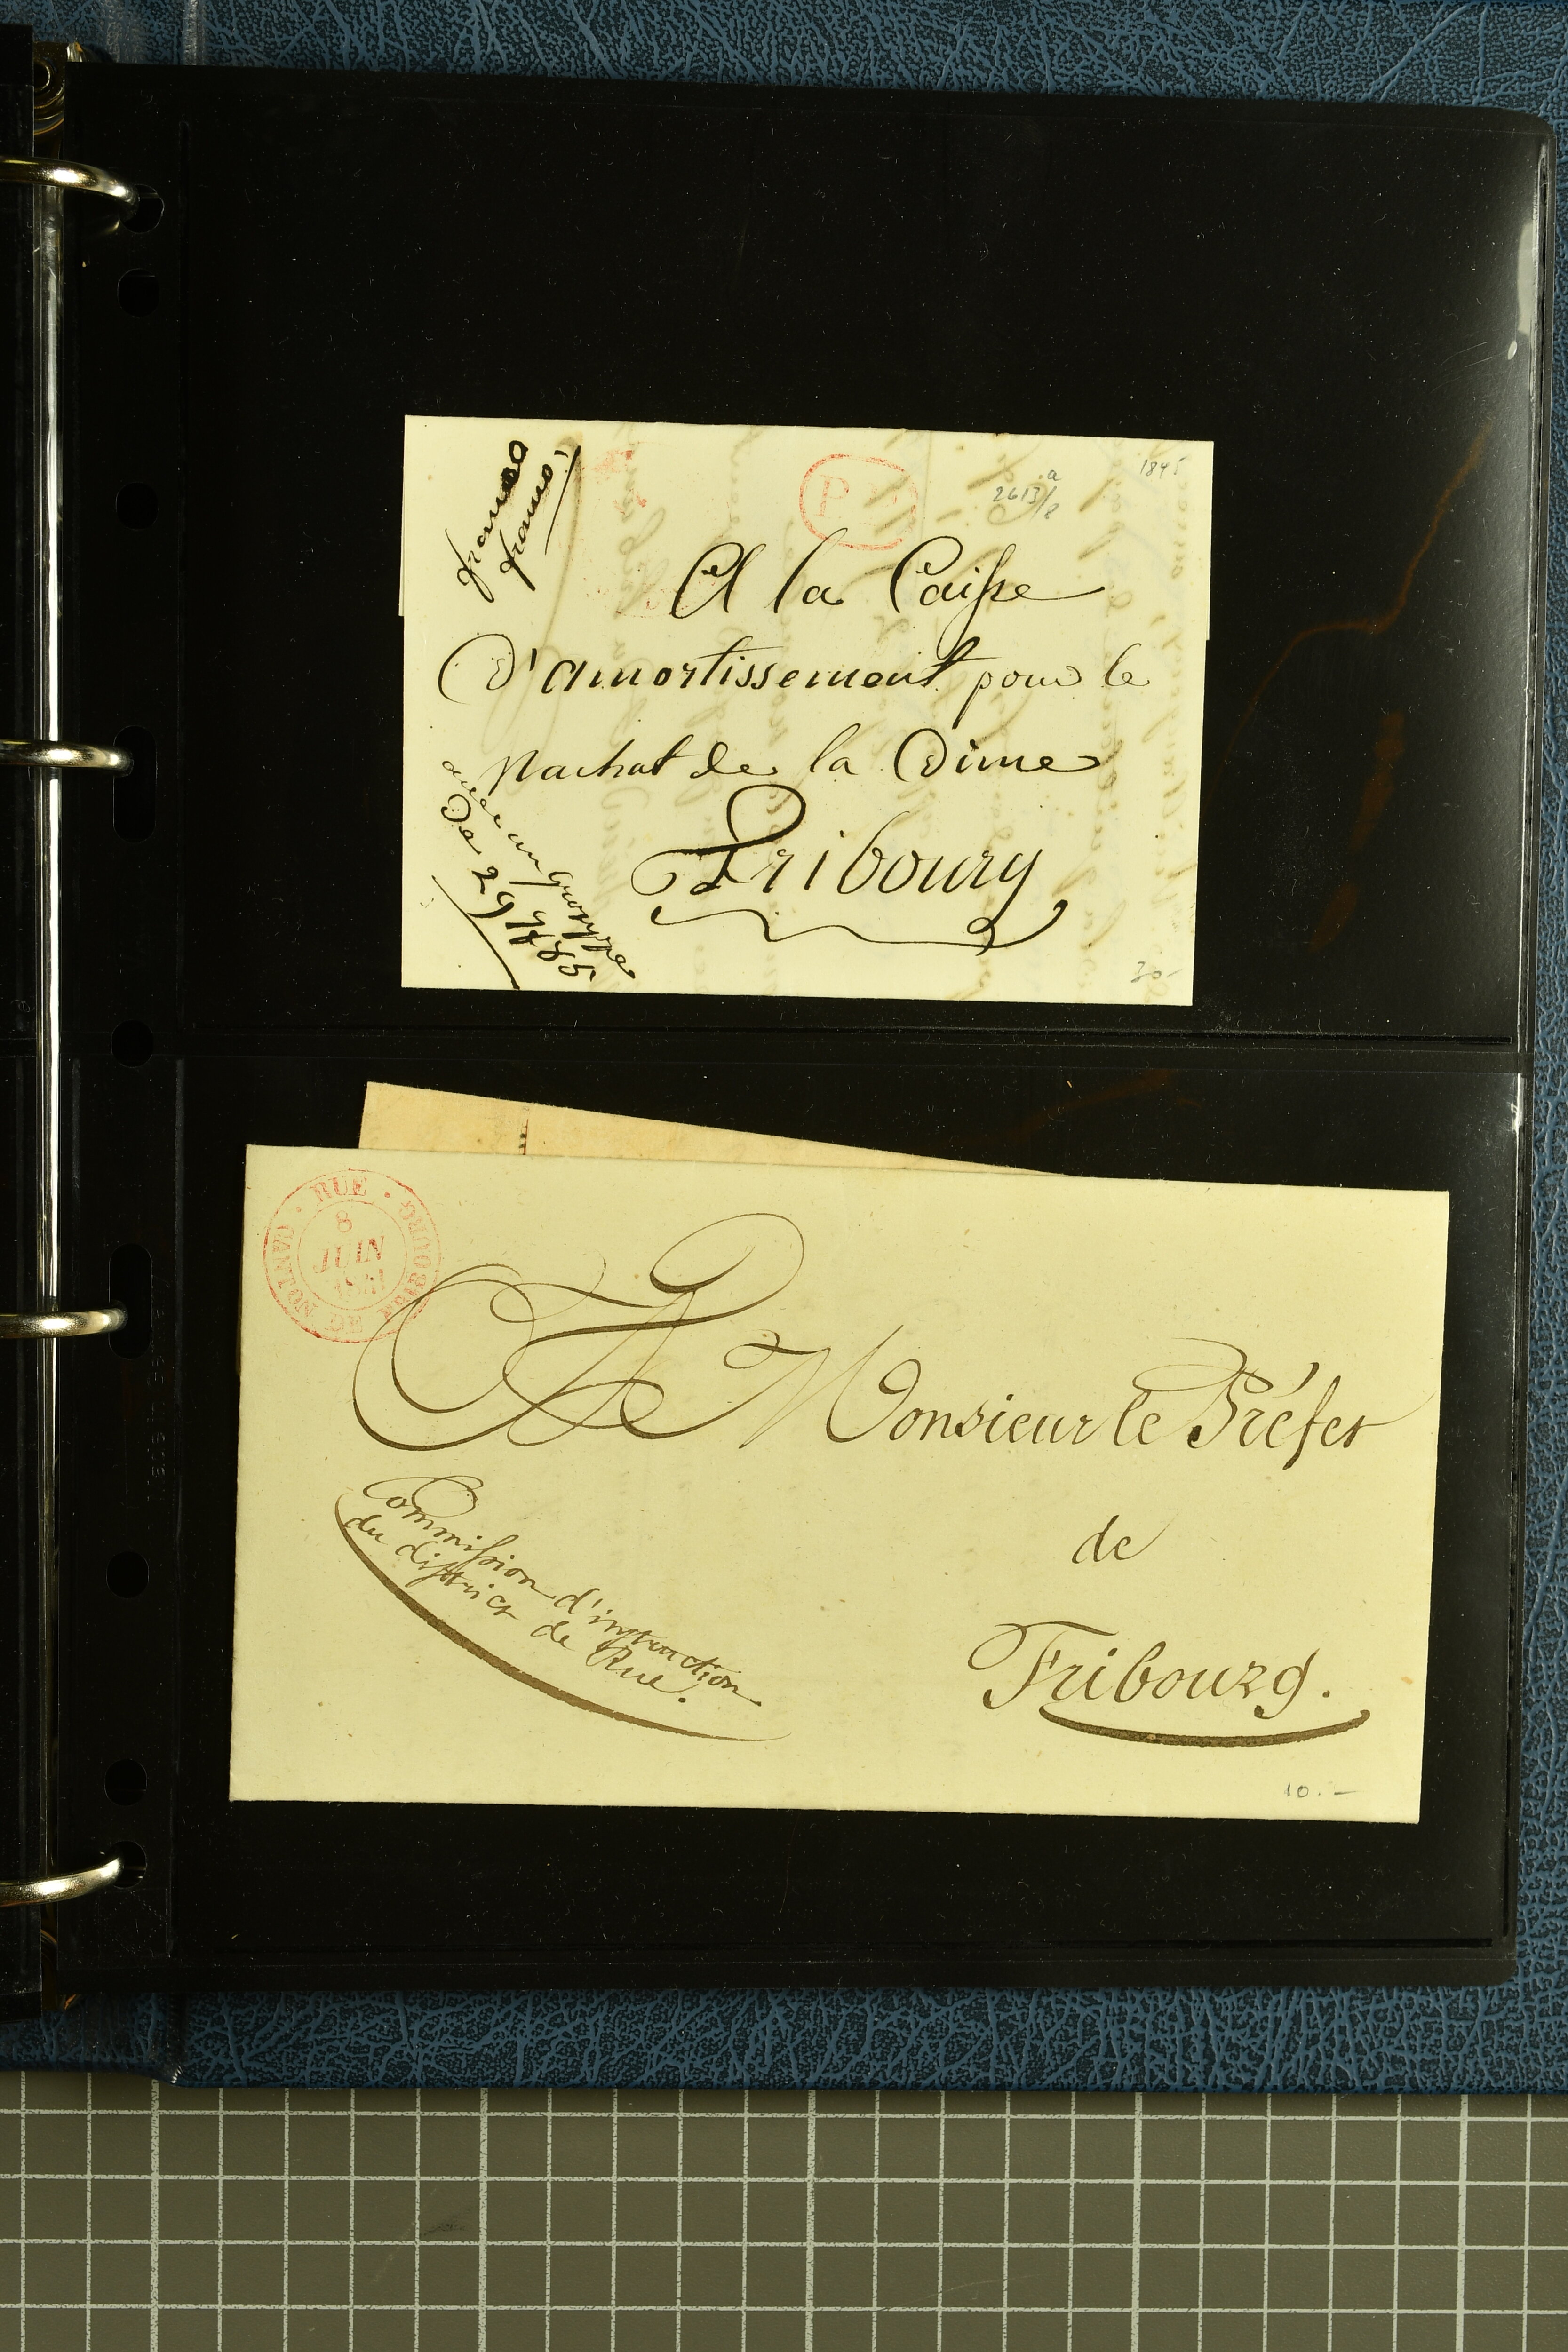 franco
franco
1845
2613 a/e
P
A la Caisse
d'amortissement pour le
Rachat de la Dime
Fribourg
avec un grouppe
De 29
30-
RUE
CANTON DE FRIBOURG
8
JUIN
A Monsieur le Préfet
de
Fribourg.
Commission d'instruction
du district de Rue.
10.-